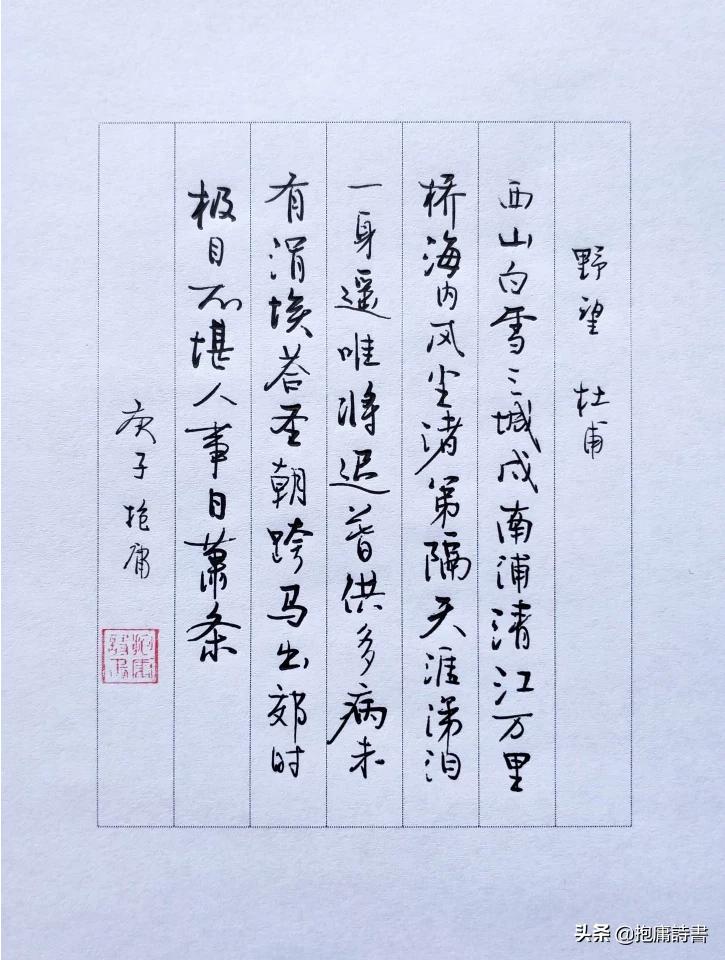 野望 杜甫
西山白雪三城戍南浦清江万里
桥海内风尘渚第隔天涯涕泪
一身遥唯将迟暮供多病未
有涓埃答圣朝跨马出郊时
极目不堪人事日萧条
庚子抱庸
头条 @抱庸詩書